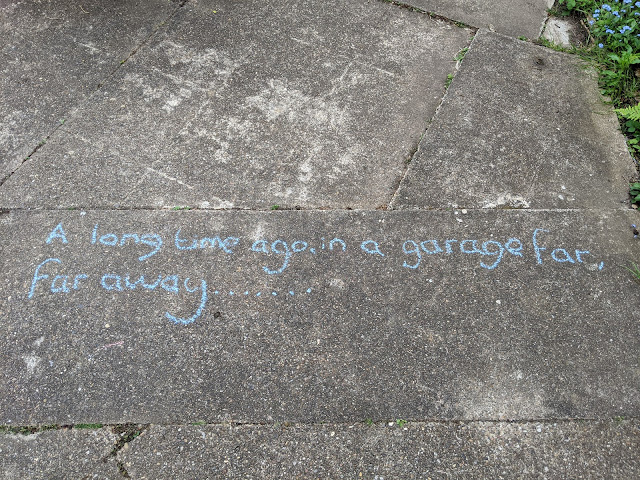 A long time ago, in a garage far,
far away.......